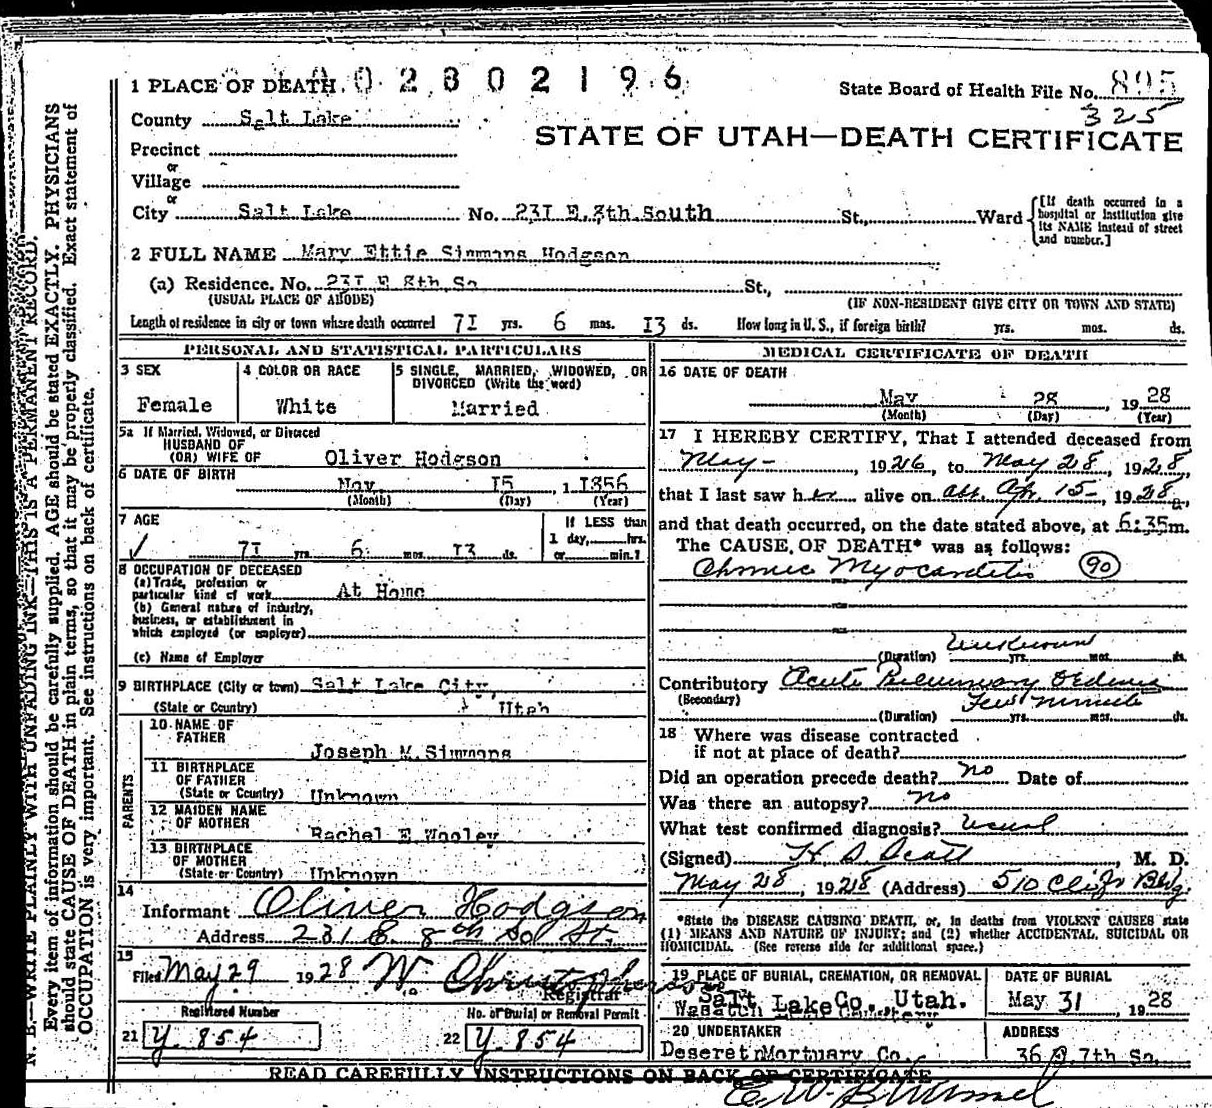 1 PLACE OF DEATH. 0 0 2 8 0 2 1 9 6
State Board of Health File No. 895
325
County Salt Lake
STATE OF UTAH—DEATH CERTIFICATE
Precinct
or
Village
or
City Salt Lake No. 231 E. 8th South St., Ward
[If death occurred in a hospital or institution give its NAME instead of street and number.]
2 FULL NAME Mary Ettie Simmons Hodgson
(a) Residence. No. 231 E 8th So St.,
(USUAL PLACE OF ABODE) (IF NON-RESIDENT GIVE CITY OR TOWN AND STATE)
Length of residence in city or town where death occurred 71 yrs. 6 mos. 13 ds. How long in U. S., if foreign birth? yrs. mos. ds.
PERSONAL AND STATISTICAL PARTICULARS
3 SEX
Female
4 COLOR OR RACE
White
5 SINGLE, MARRIED, WIDOWED, OR DIVORCED (Write the word)
Married
5a If Married, Widowed, or Divorced
HUSBAND OF
(OR) WIFE OF Oliver Hodgson
6 DATE OF BIRTH
Nov 15, 1 1856
(Month) (Day) (Year)
7 AGE
71 yrs. 6 mos. 13 ds.
If LESS than
1 day, hrs.
or min.?
8 OCCUPATION OF DECEASED
(a) Trade, profession or
particular kind of work At Home
(b) General nature of industry,
business, or establishment in
which employed (or employer)
(c) Name of Employer
9 BIRTHPLACE (City or town) Salt Lake City,
(State or Country) Utah
PARENTS
10 NAME OF
FATHER
Joseph M. Simmons
11 BIRTHPLACE
OF FATHER
(State or Country) Unknown
12 MAIDEN NAME
OF MOTHER
Rachel E Wooley
13 BIRTHPLACE
OF MOTHER
(State or Country) Unknown
14
Informant Oliver Hodgson
Address 231 E. 8th So. St.
15
Filed May 29 1928 W. Christopherson
Registrar
Registered Number
21 Y. 854
No. of Burial or Removal Permit
22 Y. 854
MEDICAL CERTIFICATE OF DEATH
16 DATE OF DEATH
May 28, 1928
(Month) (Day) (Year)
17 I HEREBY CERTIFY, That I attended deceased from
May-, 1926, to May 28, 1928,
that I last saw her alive on abt. Apr. 15-, 1928,
and that death occurred, on the date stated above, at 6:35 a m.
The CAUSE OF DEATH* was as follows:
Chronic Myocarditis 90
Unknown
(Duration) yrs. mos. ds.
Contributory Acute Pulmonary Oedema
(Secondary) Few minutes
(Duration) yrs. mos. ds.
18 Where was disease contracted
if not at place of death?
Did an operation precede death? no Date of
Was there an autopsy? no
What test confirmed diagnosis? usual
(Signed) H. S. Scott, M. D.
May 28, 1928 (Address) 510 Clift Bldg.
*State the DISEASE CAUSING DEATH, or, in deaths from VIOLENT CAUSES state
(1) MEANS AND NATURE OF INJURY; and (2) whether ACCIDENTAL, SUICIDAL OR
HOMICIDAL. (See reverse side for additional space.)
19 PLACE OF BURIAL, CREMATION, OR REMOVAL
Salt Lake Co., Utah.
Wasatch Lawn Cemetery
DATE OF BURIAL
May 31, 1928
20 UNDERTAKER
Deseret Mortuary Co.
ADDRESS
36 7th So.
READ CAREFULLY INSTRUCTIONS ON BACK OF CERTIFICATE
N. B.—WRITE PLAINLY WITH UNFADING INK—THIS IS A PERMANENT RECORD.
Every item of information should be carefully supplied. AGE should be stated EXACTLY. PHYSICIANS
should state CAUSE OF DEATH in plain terms, so that it may be properly classified. Exact statement of
OCCUPATION is very important. See instructions on back of certificate.